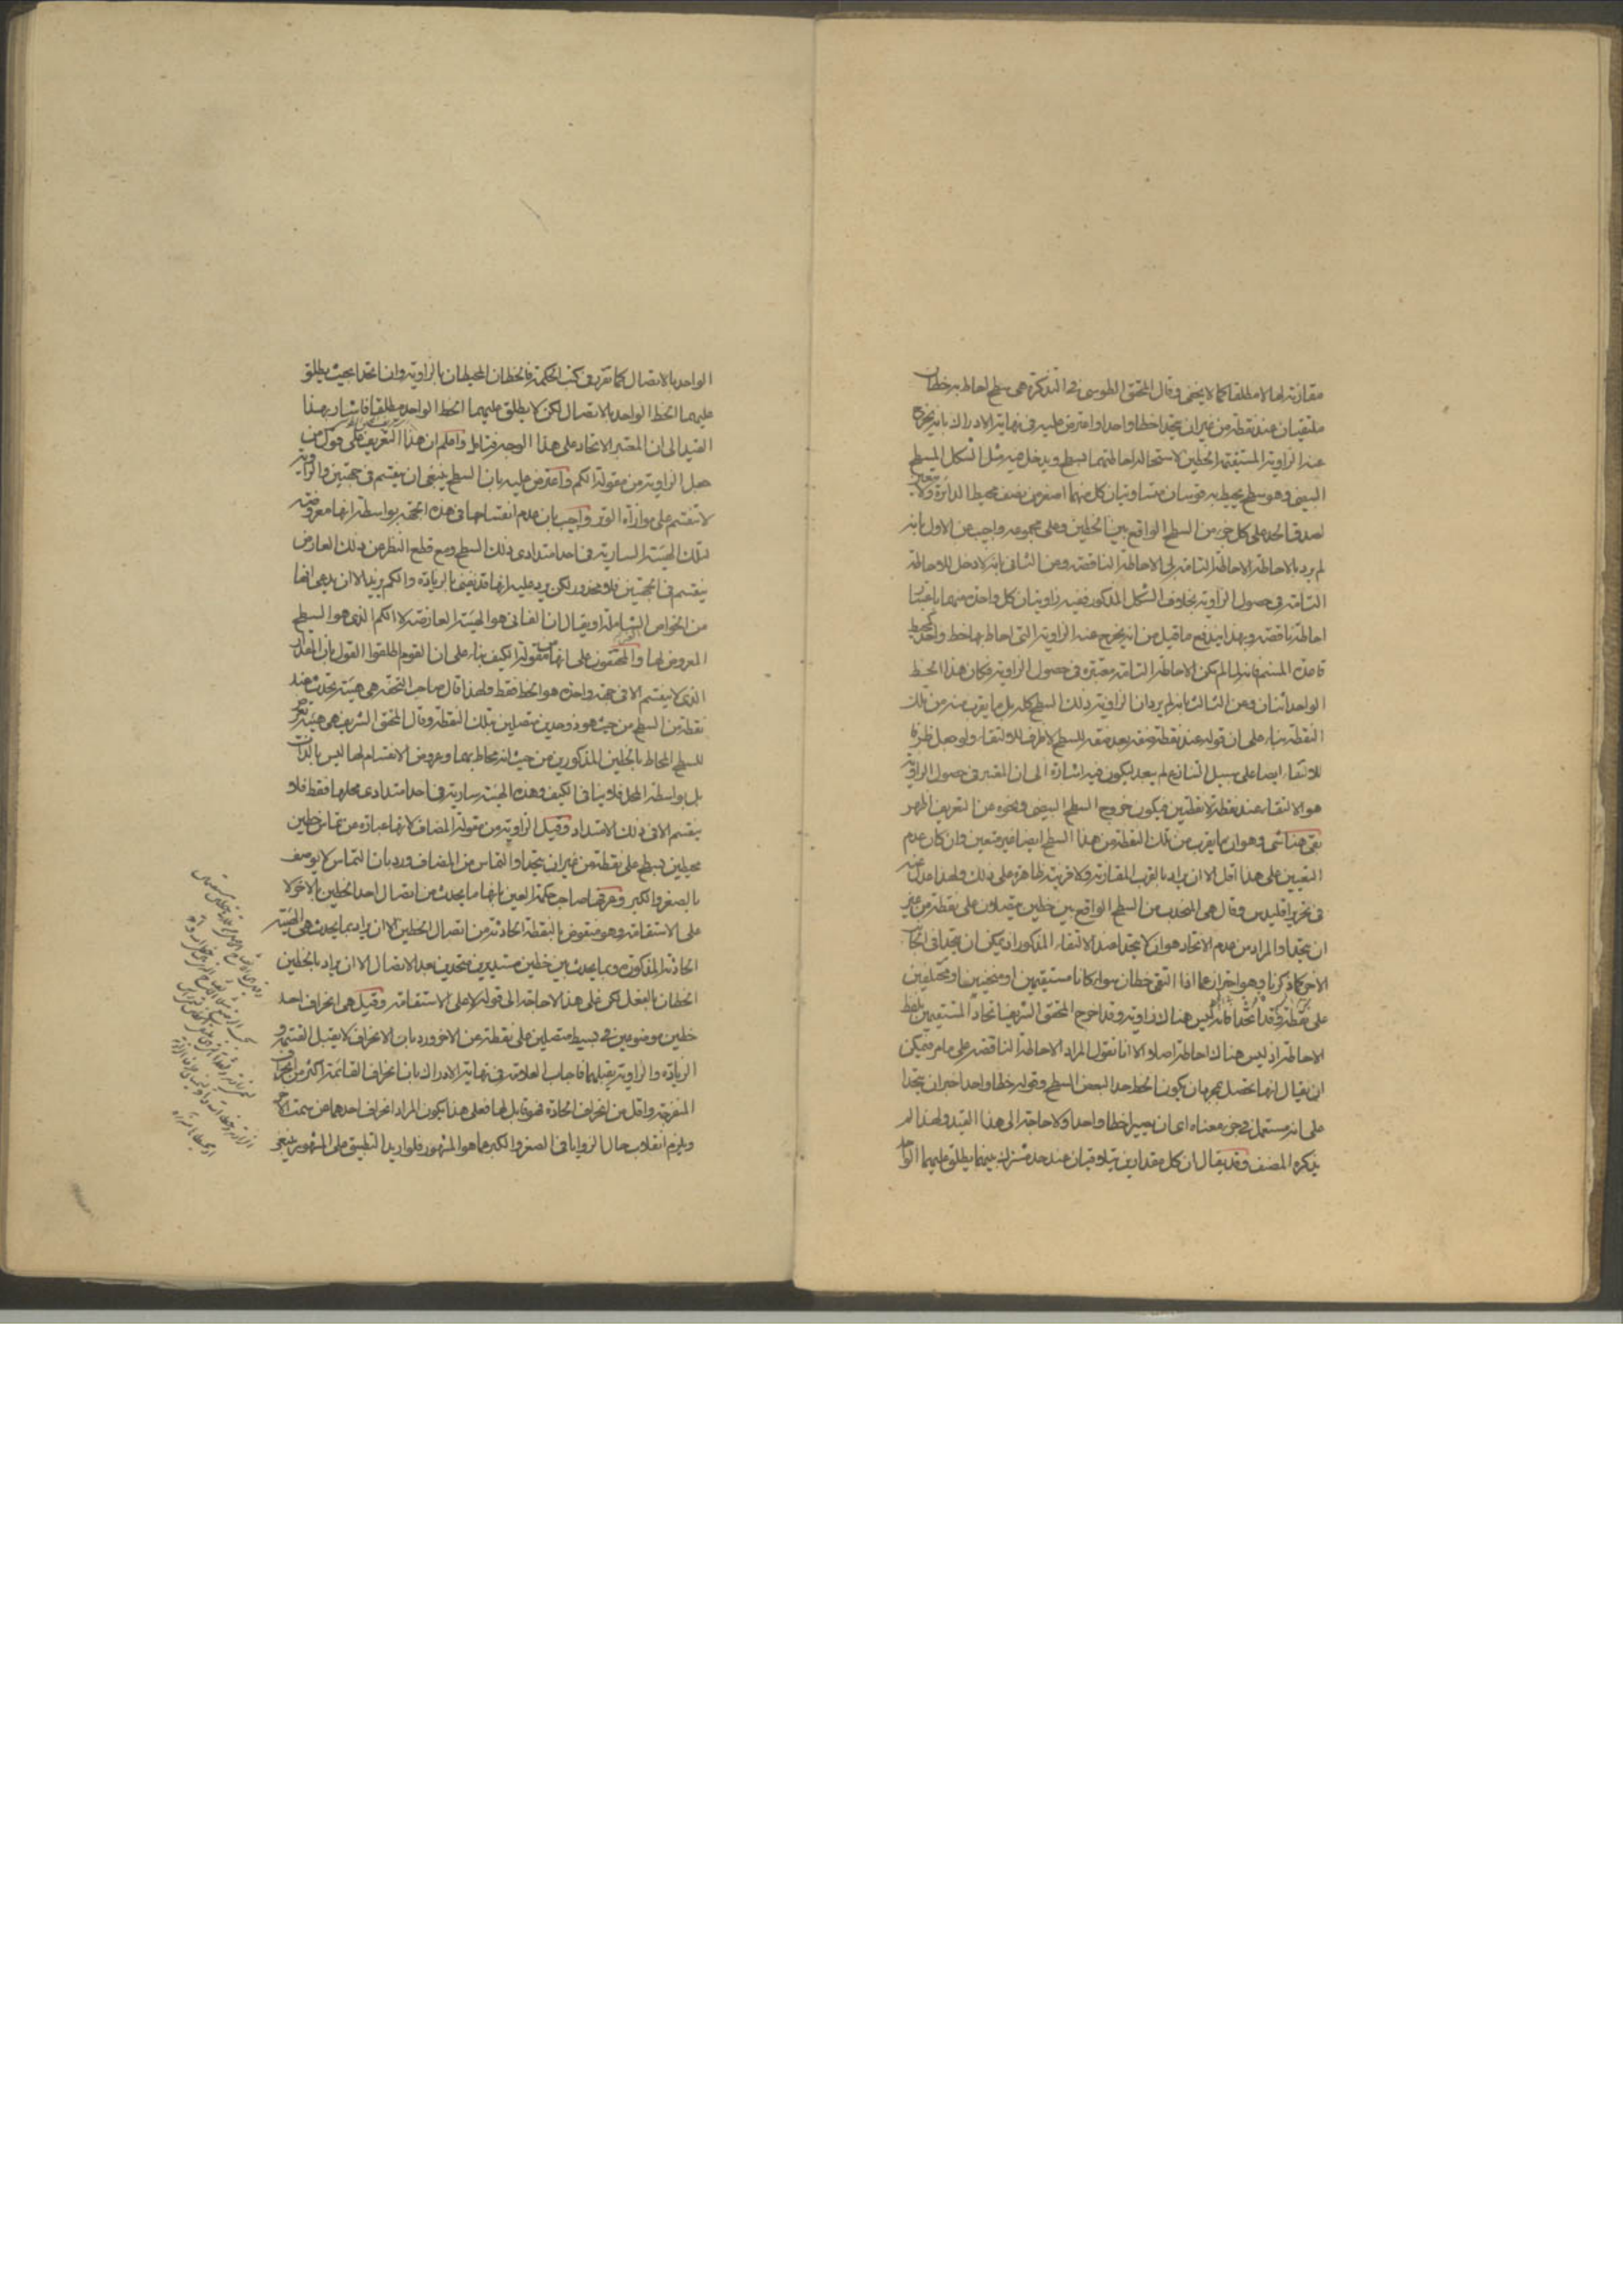 مقارنة لها لا مطلقا كما لا يخفى وقال المحقق الطوسى فى التذكرة هى سطح احاط به خطان
ملتقيان عند نقطة من غير ان يتحدا خطا واحدا واعترض عليه فى نهاية الادراك بانه يخرج
عنه الزاوية المستقيمة الخطين لاستحالة احاطتهما بسطح ويدخل فيه مثل الشكل المسطح
البيضى وهو سطح يحيط به قوسان متساويتان كل منهما اصغر من نصف محيط الدائرة ولا
لصدق الحد على كل جزء من السطح الواقع بين الخطين وعلى مجموعه واجيب عن الاول بانه
لم يرد بالاحاطة الاحاطة التامة بل الاحاطة الناقصة وعن الثانى بانه لا دخل للاحاطة
التامة فى حصول الزاوية بخلاف الشكل المذكور ففيه زاويتان كل واحدة منهما باعتبار
احاطة ناقصة وبهذا يندفع ما قيل من انه يخرج عنه الزاوية التى احاط بها خط واحد كمحيط
قاعدة المسنم فانه لما لم يكن الاحاطة التامة معتبرة فى حصول الزاوية فكان هذا الخط
الواحد اثنان وعن الثالث بانه لم يرد ان الزاوية ذلك السطح كله بل ما يقرب منه من تلك
النقطة بناء على ان قوله عند نقطة صفة بعد صفة للسطح لا ظرف للالتقاء ولو جعل ظرفا
للالتقاء ايضا على سبيل التنازع لم يبعد ليكون فيه اشارة الى ان المعتبر فى حصول الزاوية
هو الالتقاء عند نقطة لا نقطتين فيكون خروج السطح البيضى ونحوه عن التعريف اظهر
بقى هنا شى وهو ان ما يقرب من تلك النقطة من هذا السطح ايضا غير متعين وان كان عدم
التعيين على هذا اقل الا ان يراد بالقرب المقارنة ولا قرينة ظاهرة على ذلك ولهذا عدل عنه
فى تحرير اقليدس وقال هى المنحدب من السطح الواقع بين خطين يتصلان على نقطة من غير
ان يتحدا والمراد من عدم الاتحاد هو ان لا يتحدا عند الالتقاء المذكور اذ يمكن ان يتحدا فى الجانب
الاخر كما ذكرنا وهو احتراز عما اذا التقى خطان سواء كانا مستقيمين او منحنيين او مختلفين
على نقطة وقد اتحدا فانه ليس هناك زاوية وقد اخرج المحقق الشريف اتحاد المستقيمين بلفظ
الاحاطة اذ ليس هناك احاطة اصلا الا انا نقول المراد الاحاطة الناقصة على ما مر فيمكن
ان يقال انها تحصل بمجرد ان يكون الخط حدا لبعض السطح وقوله خطا واحدا خبر ان يتحدا
على انه مستعمل فى جزء معناه اى ان يصيرا خطا واحدا ولا حاجة الى هذا القيد ولهذا لم
يذكره المصنف وقد يقال ان كل مقدارين يتلاقيان عند حد مشترك بينهما يطلق عليهما الواحد
الواحد بالاتصال كما تقرر فى كتب الحكمة فالخطان المحيطان بالزاوية وان اتحدا بحيث يطلق
عليهما الخط الواحد بالاتصال لكن لا يطلق عليهما الخط الواحد مطلقا فاشار بهذا
القيد الى ان المعتبر الاتحاد على هذا الوجه فتامل واعلم ان هذا التعريف على قول من
جعل الزاوية من مقولة الكم واعترض عليه بان السطح ينبغى ان ينقسم فى جهتين والزاوية
لا تنقسم على موازاة الوتر واجيب بان عدم انقسامها فى هذه الجهة بواسطة انها معروضة
لتلك الهيئة السارية فى احد امتدادى ذلك السطح ومع قطع النظر عن ذلك العارض
ينقسم فى الجهتين فلا محذور لكن يرد عليه انها قد يفنى بالزيادة والكم يزيد الا ان يدعى انها
من الخواص الشاملة او يقال ان الفانى هو الهيئة العارضة لا الكم الذى هو السطح
المعروض لها والمحققون على انها من مقولة الكيف بناء على ان القوم اطلقوا القول بان المقدار
الذى لا ينقسم الا فى جهة واحدة هو الخط فقط ولهذا قال صاحب التحفة هى هيئة تحدث عند
نقطة من السطح من حيث هو ذو حدين متصلين بتلك النقطة وقال المحقق الشريف هى هيئة تعرض
للسطح المحاط بالخطين المذكورين من حيث انه محاط بهما وعروض الانقسام لها ليس بالذات
بل بواسطة المحل فلا ينافى الكيف وهذه الهيئة سارية فى احد امتدادى محلها فقط فلا
ينقسم الا فى ذلك الامتداد وقيل الزاوية من مقولة المضاف لانها عبارة عن تماس خطين
محيطين بسطح على نقطة من غير ان يتحدا والتماس من المضاف ورد بان التماس لا يوصف
بالصغر والكبر وعرفها صاحب حكمة العين بانها ما يحدث من اتصال احد الخطين بالاخر لا
على الاستقامة وهو منقوض بالنقطة الحادثة من اتصال الخطين الا ان يراد بما يحدث هى الهيئة
الحادثة المذكورة وبما يحدث بين خطين مستديرين متحدين بعد الاتصال الا ان يراد بالخطين
الخطان بالفعل لكن على هذا لا حاجة الى قوله لا على الاستقامة وقيل هى انحراف احد
خطين موضوعين فى بسيط متصلين على نقطة من الاخر ورد بان الانحراف لا يقبل القسمة و
الزيادة والزاوية يقبلهما فاجاب العلامة فى نهاية الادراك بان انحراف القائمة اكثر من انحراف
المنفرجة واقل من انحراف الحادة فهو قابل لها فعلى هذا يكون المراد انحراف احدهما عن سمت الاخر
ويلزم انقلاب حال الزوايا فى الصغر والكبر عما هو المشهور فلو اريد التطبيق على المشهور ينبغى